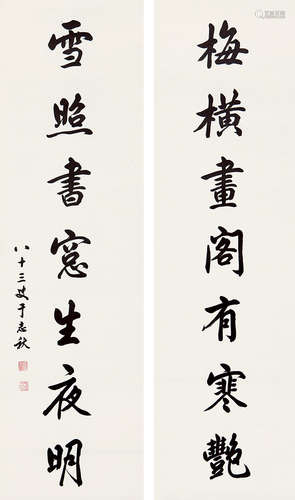 梅橫畫閣有寒艷
雪照書窓生夜明
八十三叟于志秋